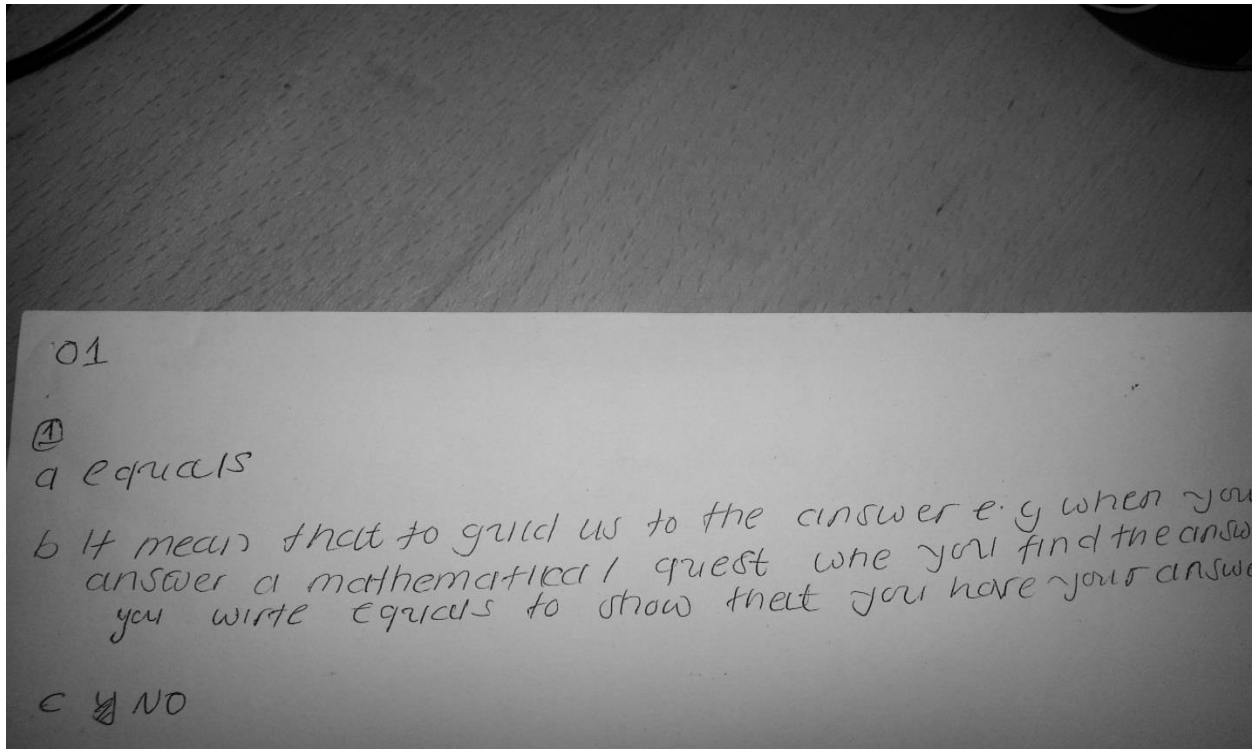 01
①
a equals
b It mean that to guid us to the answer e.g when you
answer a mathematical quest whe you find the answ
you wirte equals to show that you have your answe
c NO